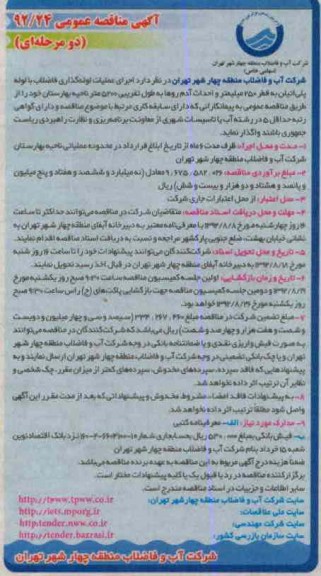 آگهی مناقصه عمومی ۹۲/۲۴
(دو مرحله‌ای)
شرکت آب و فاضلاب منطقه چهار شهر تهران
(سهامی خاص)
شرکت آب و فاضلاب منطقه چهار شهر تهران در نظر دارد اجرای عملیات لوله‌گذاری فاضلاب با لوله
پلی‌اتیلن به قطر ۲۵۰ میلیمتر و احداث آدم روها به طول تقریبی ۵۲۰۰ متر ناحیه بهارستان خود را از
طریق مناقصه عمومی به پیمانکارانی که دارای سابقه کاری مرتبط با موضوع مناقصه و دارای گواهی
رتبه حداقل ۵ در رشته آب یا تاسیسات شهری از معاونت برنامه‌ریزی و نظارت راهبردی ریاست
جمهوری باشند واگذار نماید.
۱- مدت و محل اجرا: ظرف مدت ۶ ماه از تاریخ ابلاغ قرارداد در محدوده عملیاتی ناحیه بهارستان
شرکت آب و فاضلاب منطقه چهار شهر تهران
۲- مبلغ برآوردی مناقصه: ۹،۶۷۵،۵۸۲،۰۲۶ معادل (نه میلیارد و ششصد و هفتاد و پنج میلیون
و پانصد و هشتاد و دو هزار و بیست و شش) ریال
۳- محل اعتبار: از محل اعتبارات جاری شرکت
۴- مهلت و محل دریافت اسناد مناقصه: متقاضیان شرکت در مناقصه می‌توانند حداکثر تا ساعت
۱۶ روز چهارشنبه مورخ ۱۳۹۲/۸/۸ با معرفی‌نامه معتبر به دبیرخانه آبفای منطقه چهار شهر تهران به
نشانی خیابان بهشت، ضلع جنوبی پارکشهر مراجعه و نسبت به دریافت اسناد مناقصه اقدام نمایند.
۵- تاریخ و محل تحویل اسناد: شرکت‌کنندگان می‌توانند پیشنهادات خود را تا ساعت ۱۶ روز شنبه
مورخ به دبیرخانه آبفای منطقه چهار شهر تهران در قبال اخذ رسید تحویل نمایند.
۶- تاریخ و زمان بازگشایی: اولین جلسه کمیسیون مناقصه ساعت ۹:۳۰ صبح روز یکشنبه مورخ
۱۳۹۲/۸/۱۹ و دومین جلسه کمیسیون مناقصه جهت بازگشایی پاکت‌های (ج) راس ساعت ۹:۳۰ صبح
روز یکشنبه مورخ ۱۳۹۲/۸/۲۶ خواهد بود.
۷- مبلغ تضمین شرکت در مناقصه مبلغ ۳۳۴،۲۶۷،۴۶۰ (سیصد و سی و چهار میلیون و دویست
و شصت و هفت هزار و چهارصد و شصت) ریال می‌باشد که شرکت‌کنندگان در مناقصه می‌توانند
به صورت فیش واریزی نقدی و یا ضمانتنامه بانکی در وجه شرکت آب و فاضلاب منطقه چهار شهر
تهران و یا چک بانکی تضمینی در وجه شرکت آب و فاضلاب منطقه چهار شهر تهران ارسال نمایند و به
پیشنهادهایی که فاقد سپرده، سپرده‌های مخدوش، سپرده‌های کمتر از میزان مقرر، چک شخصی و
نظایر آن ترتیب اثر داده نخواهد شد.
۸- به پیشنهادات فاقد امضا، مشروط مخدوش و پیشنهاداتی که بعد از مدت مقرر این آگهی
واصل شود مطلقا ترتیب اثر داده نخواهد شد.
۹- مدارک مورد نیاز: الف- معرفی‌نامه کتبی
ب- فیش بانکی به مبلغ ریال به حساب جاری شماره نزد بانک اقتصاد نوین
شعبه ۱۵ خرداد بنام شرکت آب و فاضلاب منطقه چهار شهر تهران
ضمنا هزینه درج آگهی مربوط به این مناقصه به عهده برنده مناقصه می‌باشد.
برگزارکننده مناقصه در رد یا قبول یک یا کلیه پیشنهادات مختار است.
سایر اطلاعات و جزییات در اسناد مناقصه مندرج است.
سایت شرکت آب و فاضلاب منطقه چهار شهر تهران: http://www.tpww.co.ir
سایت ملی مناقصات: http://iets.mporg.ir
سایت شرکت مهندسی: http://tender.nww.co.ir
سایت سازمان بازرسی کشور: http://tender.bazrasi.ir
شرکت آب و فاضلاب منطقه چهار شهر تهران